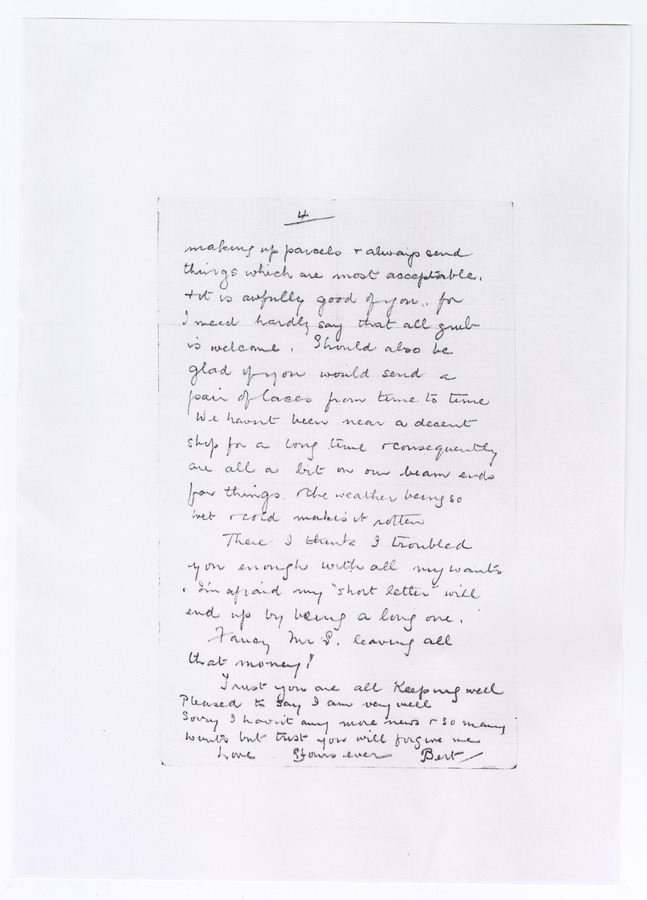 4
making up parcels & always send
things which are most acceptable.
& it is awfully good of you, for
I need hardly say that all grub
is welcome. Should also be
glad if you would send a
pair of laces from time to time
We havn't been near a decent
shop for a long time & consequently
are all a bit on our beam ends
for things. & the weather being so
wet & cold makes it rotten
There I think I troubled
you enough with all my wants
& I'm afraid my "short letter" will
end up by being a long one.
Fancy Mr S. leaving all
that money!
Trust you are all keeping well
Pleased to say I am very well
Sorry I havn't any more news & so many
wants but trust you will forgive me
Love Yours ever Bert